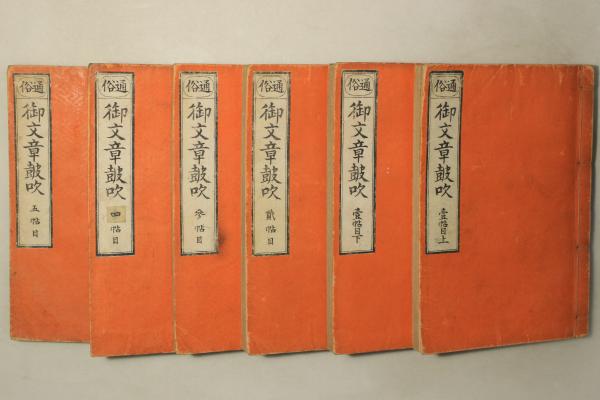 通俗
御文章皷吹
壹帖目上
通俗
御文章皷吹
壹帖目下
通俗
御文章皷吹
貳帖目
通俗
御文章皷吹
参帖目
通俗
御文章皷吹
四帖目
通俗
御文章皷吹
五帖目